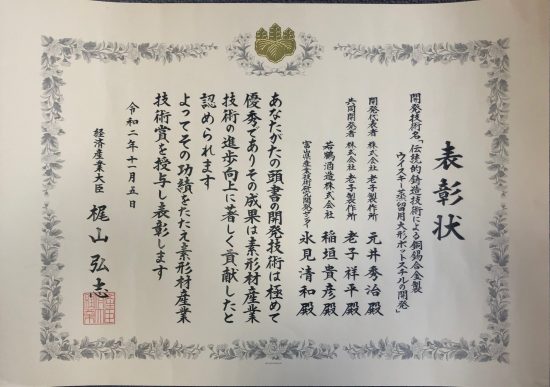 表彰状
開発技術名「伝統的鋳造技術による銅錫合金製
ウイスキー蒸留用大形ポットスチルの開発」
開発代表者 株式会社 老子製作所 元井秀治殿
共同開発者 株式会社 老子製作所 老子祥平殿
若鶴酒造株式会社 稲垣貴彦殿
富山県産業技術研究開発センター 氷見清和殿
あなたがたの頭書の開発技術は極めて
優秀でありその成果は素形材産業
技術の進歩向上に著しく貢献したと
認められます
よってその功績をたたえ素形材産業
技術賞を授与し表彰します
令和二年十一月五日
経済産業大臣 梶山弘志